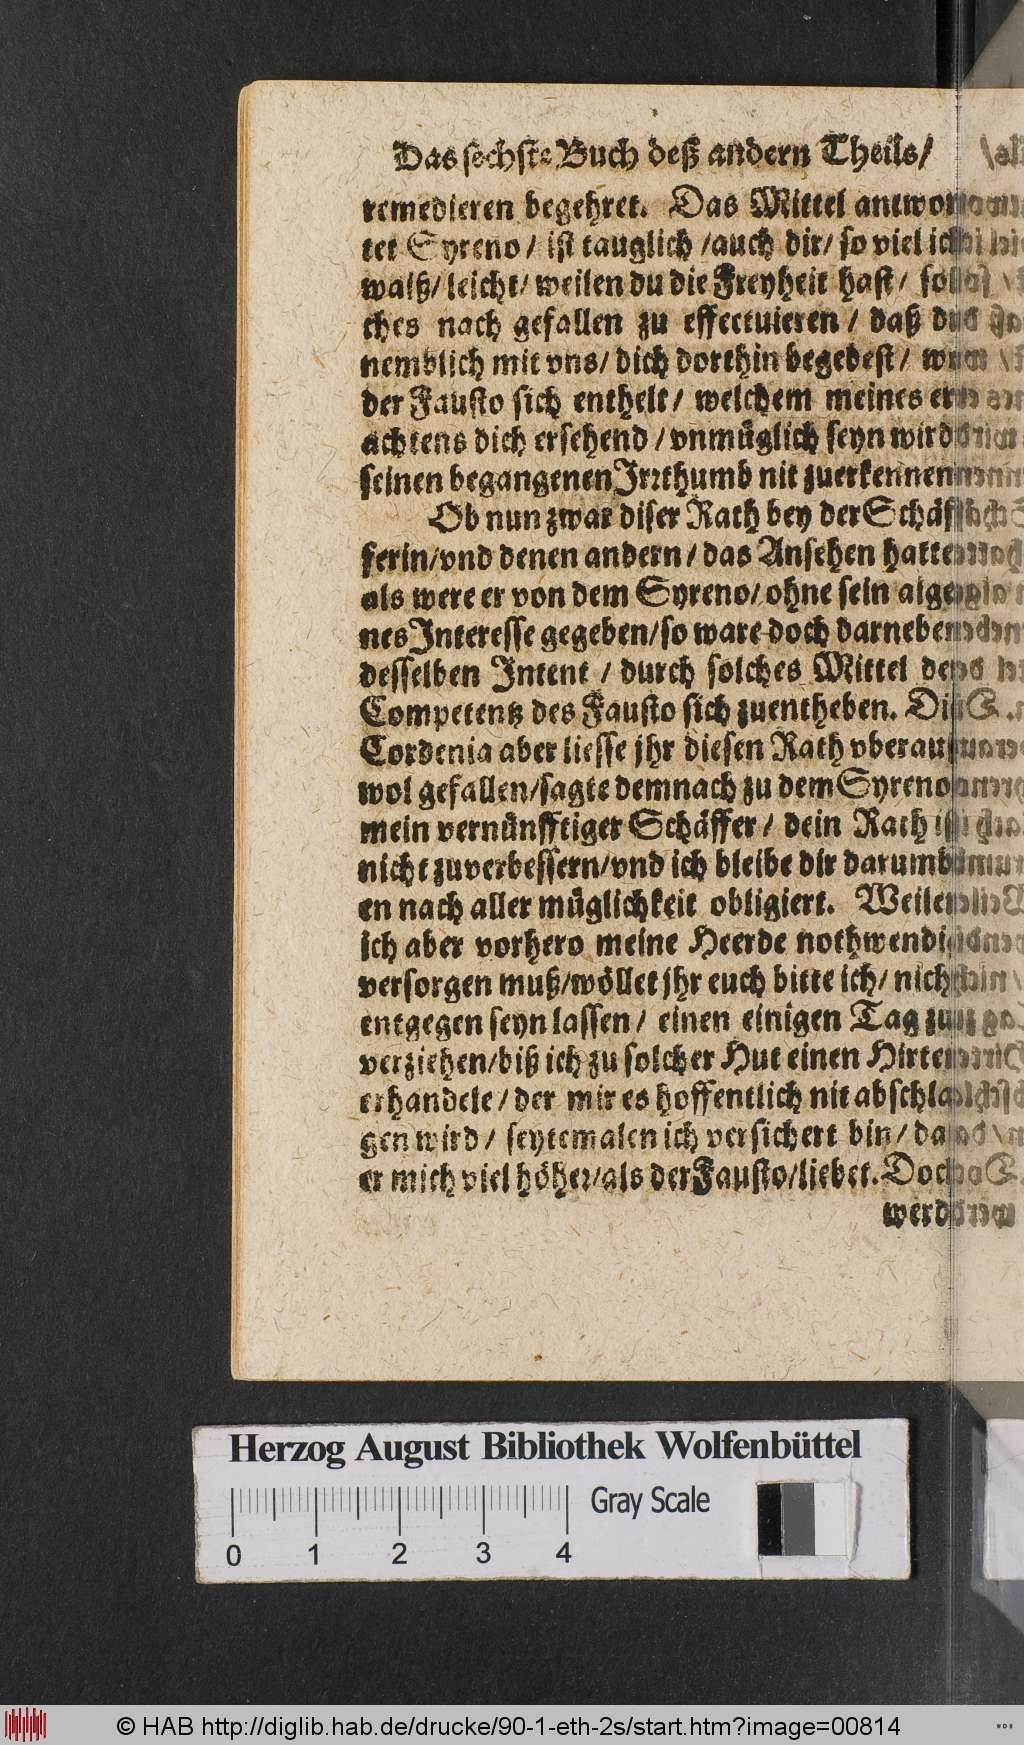 Das sechste Buch deß andern Theils/
remedieren begehret. Das Mittel antwor-
tet Syreno/ ist tauglich /auch dir/ so viel ich
waiß/ leicht/ weilen du die Freyheit hast/ sol-
ches nach gefallen zu effectuieren / daß du
nemblich mit vns/ dich dorthin begebest/ wa
der Fausto sich enthelt/ welchem meines er-
achtens dich ersehend / vnmüglich seyn wird
seinen begangenen Irrthumb nit zuerkennen
Ob nun zwar diser Rath bey der Schäf-
ferin/vnd denen andern / das Ansehen hatte
als were er von dem Syreno/ ohne sein aige-
nes Interesse gegeben/so ware doch darneben
desselben Intent / durch solches Mittel der
Competentz des Fausto sich zuentheben. Die
Cordenia aber liesse jhr diesen Rath vberauß
wol gefallen/sagte demnach zu dem Syreno
mein vernünfftiger Schäffer / dein Rath ist
nicht zuverbessern/vnd ich bleibe dir darumb
en nach aller müglichkeit obligiert. Weilen
ich aber vorhero meine Heerde nothwendig
versorgen muß/wöllet jhr euch bitte ich/ nicht
entgegen seyn lassen / einen einigen Tag zu
verziehen/biß ich zu solcher Hut einen Hirten
erhandele / der mir es hoffentlich nit abschla-
gen wird / seytemalen ich versichert bin/ daß
er mich viel höher/als der Fausto/liebet. Doch
werd
Herzog August Bibliothek Wolfenbüttel
Gray Scale
0 1 2 3 4
© HAB http://diglib.hab.de/drucke/90-1-eth-2s/start.htm?image=00814